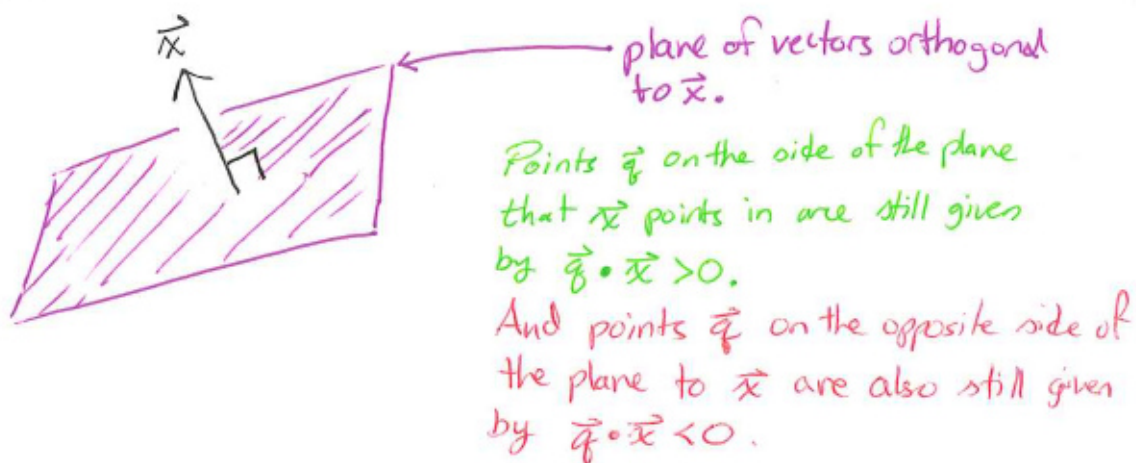 x⃗
plane of vectors orthogonal
to x⃗.
Points q⃗ on the side of the plane
that x⃗ points in are still given
by q⃗ • x⃗ >0.
And points q⃗ on the opposite side of
the plane to x⃗ are also still given
by q⃗ • x⃗ <0.